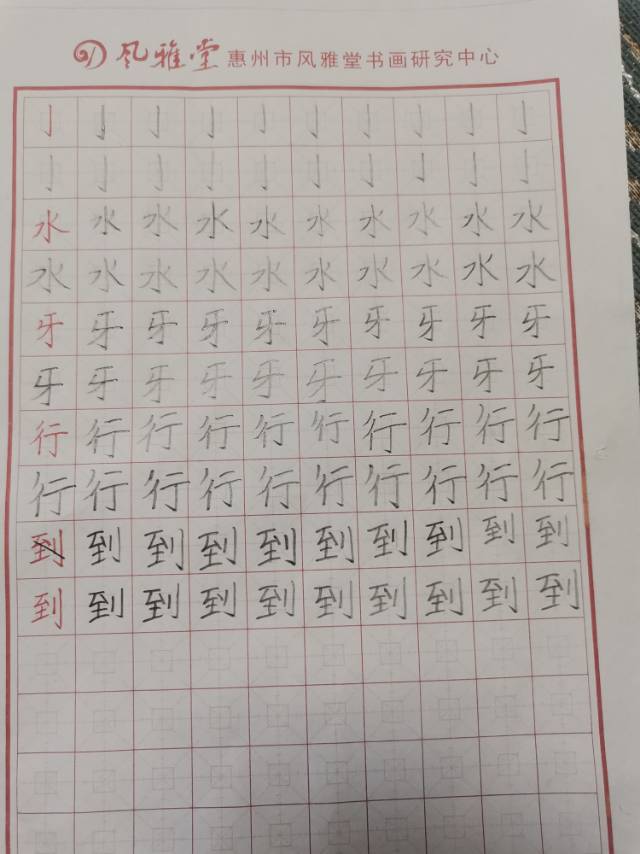 风雅堂 惠州市风雅堂书画研究中心
亅亅亅亅亅亅亅亅亅亅
亅亅亅亅亅亅亅亅亅亅
水水水水水水水水水水
水水水水水水水水水水
牙牙牙牙牙牙牙牙牙牙
牙牙牙牙牙牙牙牙牙牙
行行行行行行行行行行
行行行行行行行行行行
到到到到到到到到到到
到到到到到到到到到到